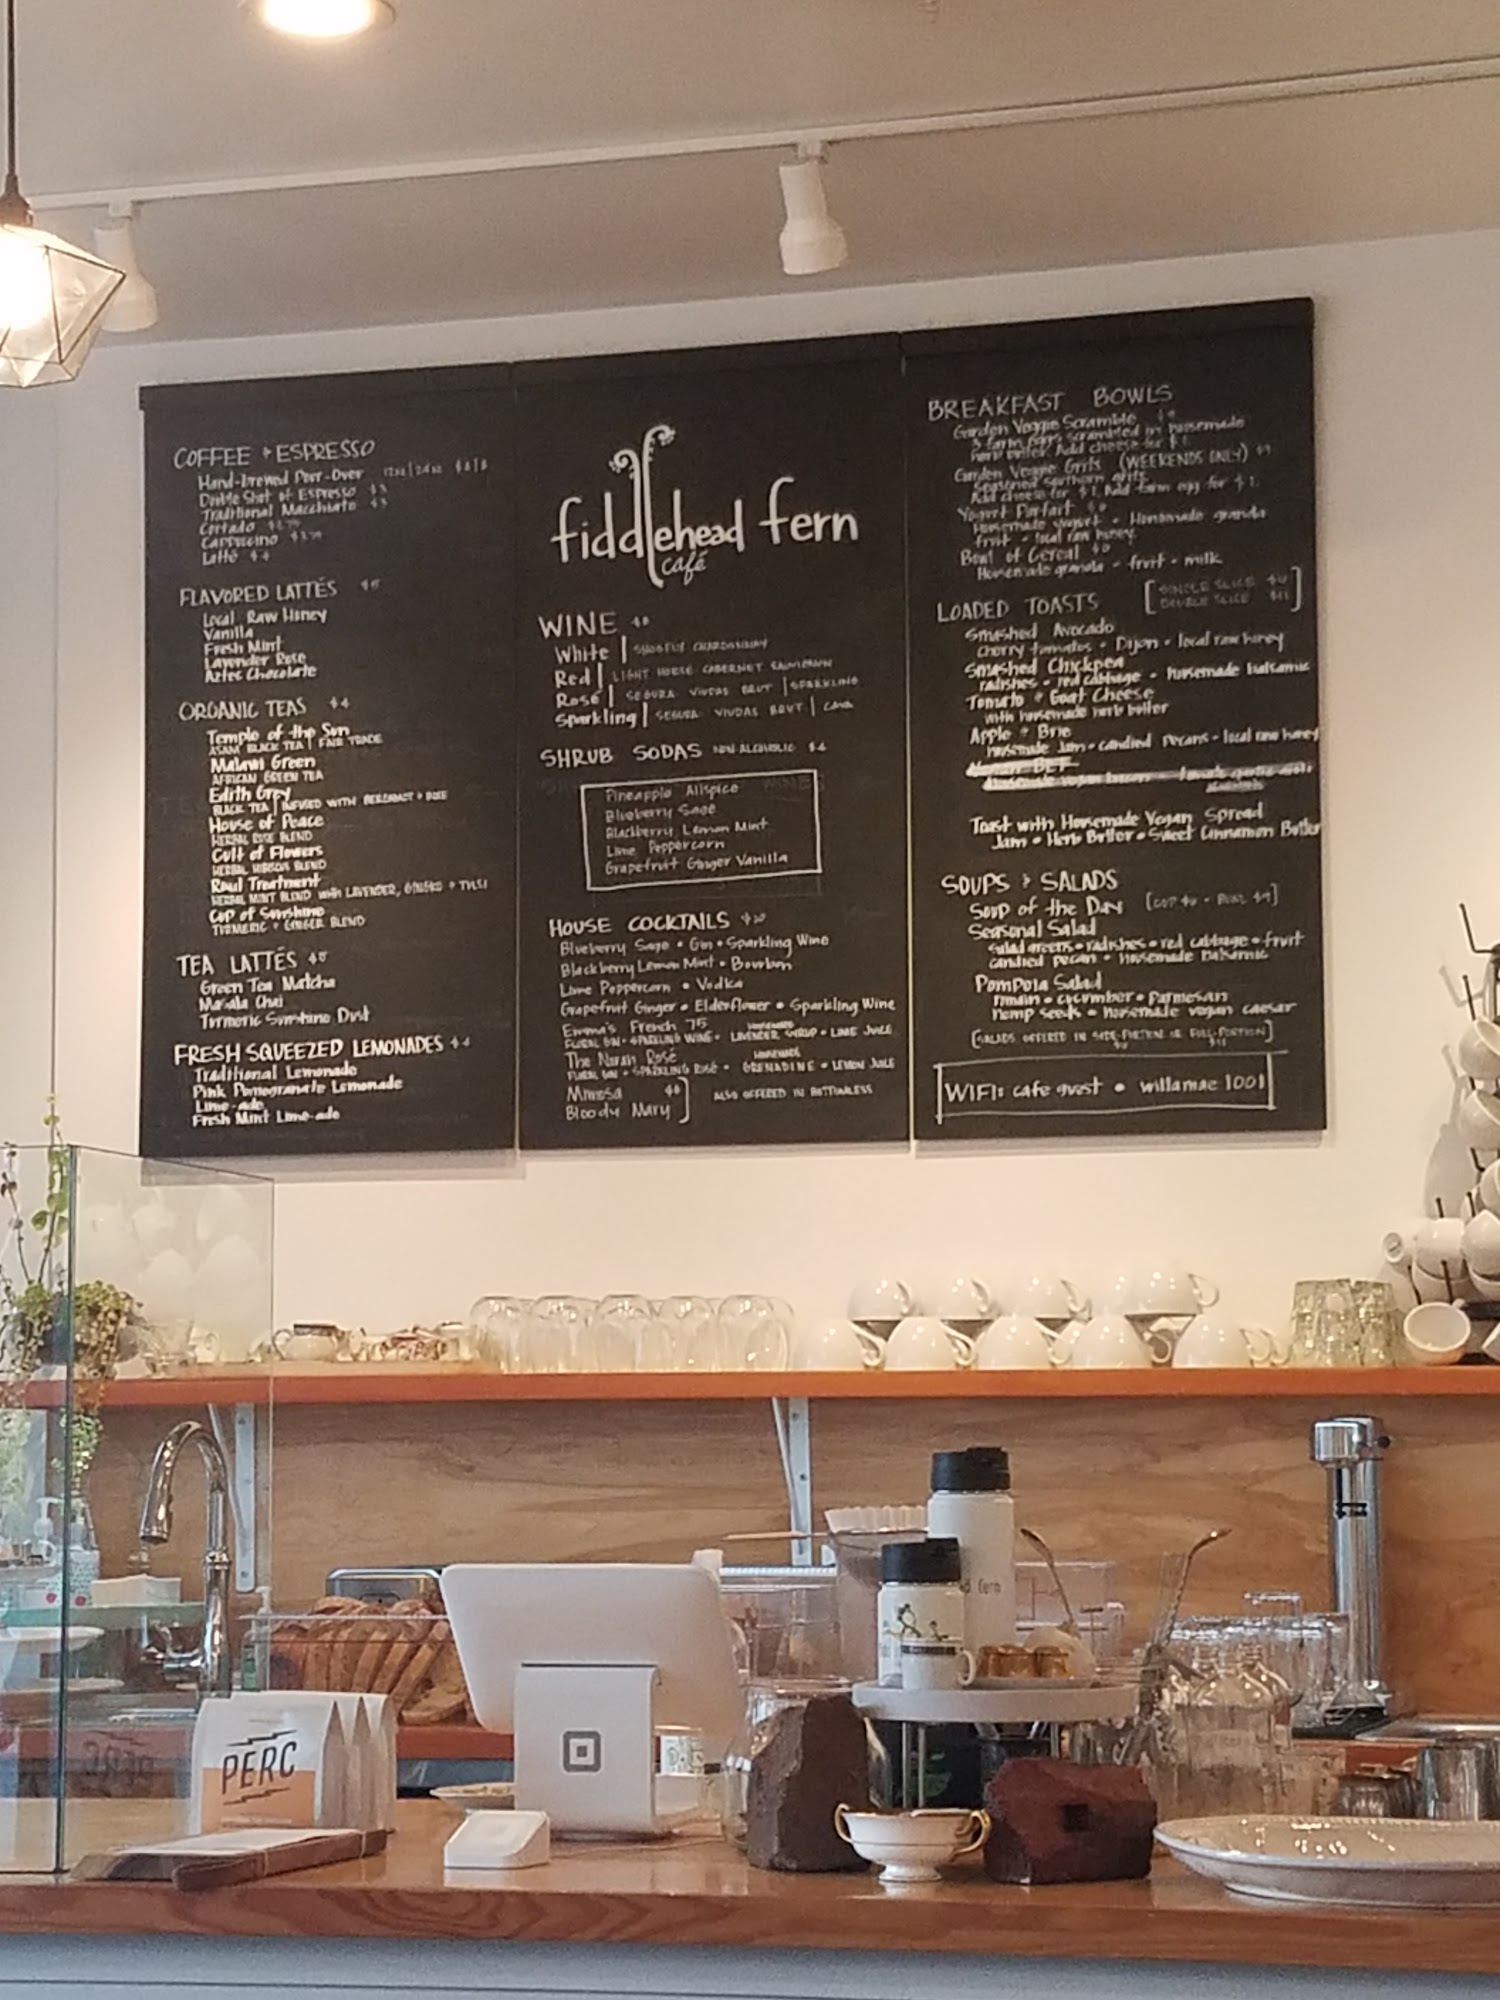 COFFEE + ESPRESSO
Hand-brewed Pour-Over 12oz | 24oz
Double Shot of Espresso $3
Traditional Macchiato $3
Cortado
Cappuccino
Latté $4
FLAVORED LATTÉS
Local Raw Honey
Vanilla
Fresh Mint
Lavender Rose
Aztec Chocolate
ORGANIC TEAS $4
Temple of the Sun
ASAM BLACK TEA | FAIR TRADE
Malawi Green
AFRICAN GREEN TEA
Edith Grey
BLACK TEA | INFUSED WITH BERGAMOT + ROSE
House of Peace
HERBAL ROSE BLEND
Cult of Flowers
HERBAL HIBISCUS BLEND
Raul Treatment
HERBAL MINT BLEND WITH LAVENDER, GINGER + TULSI
Cup of Sunshine
TURMERIC + GINGER BLEND
TEA LATTÉS $5
Green Tea Matcha
Masala Chai
Turmeric Sunshine Dust
FRESH SQUEEZED LEMONADES $4
Traditional Lemonade
Pink Pomegranate Lemonade
Lime-ade
Fresh Mint Lime-ade
fiddlehead fern
café
WINE $8
White | CHARDONNAY
Red | LIGHT HORSE CABERNET SAUVIGNON
Rosé | SEGURA VIUDAS BRUT | SPARKLING
Sparkling | SEGURA VIUDAS BRUT | CAVA
SHRUB SODAS NON ALCOHOLIC $4
Pineapple Allspice
Blueberry Sage
Blackberry Lemon Mint
Lime Peppercorn
Grapefruit Ginger Vanilla
HOUSE COCKTAILS $10
Blueberry Sage • Gin • Sparkling Wine
Blackberry Lemon Mint • Bourbon
Lime Peppercorn • Vodka
Grapefruit Ginger • Elderflower • Sparkling Wine
Emma's French 75
FLORAL GIN • SPARKLING WINE • HOMEMADE LAVENDER SYRUP • LIME JUICE
The Norah Rosé
FLORAL GIN • SPARKLING ROSÉ • HOMEMADE GRENADINE • LEMON JUICE
Mimosa $8
Bloody Mary ALSO OFFERED IN BOTTOMLESS
BREAKFAST BOWLS
Garden Veggie Scramble $9
3 farm eggs scrambled in housemade
herb butter. Add cheese for $1.
Garden Veggie Grits (WEEKENDS ONLY) $9
Seasoned southern grits.
Add cheese for $1. Add farm egg for $1.
Yogurt Parfait
Homemade yogurt • Homemade granola
fruit • local raw honey
Bowl of Cereal
Housemade granola • fruit • milk
LOADED TOASTS
[SINGLE SLICE
DOUBLE SLICE $11]
Smashed Avocado
cherry tomatoes • Dijon • local raw honey
Smashed Chickpea
radishes • red cabbage • housemade balsamic
Tomato + Goat Cheese
with housemade herb butter
Apple + Brie
housemade jam • candied pecans • local raw honey
Toast with Housemade Vegan Spread
Jam • Herb Butter • Sweet Cinnamon Butter
SOUPS + SALADS
Soup of the Day [CUP $6 • BOWL $9]
Seasonal Salad
salad greens • radishes • red cabbage • fruit
candied pecan • housemade balsamic
Pompoia Salad
romain • cucumber • Parmesan
hemp seeds • housemade vegan caesar
[SALADS OFFERED IN SIDE-PORTION or FULL-PORTION]
WIFI: cafe guest • willamae 1001
d fern
PERC